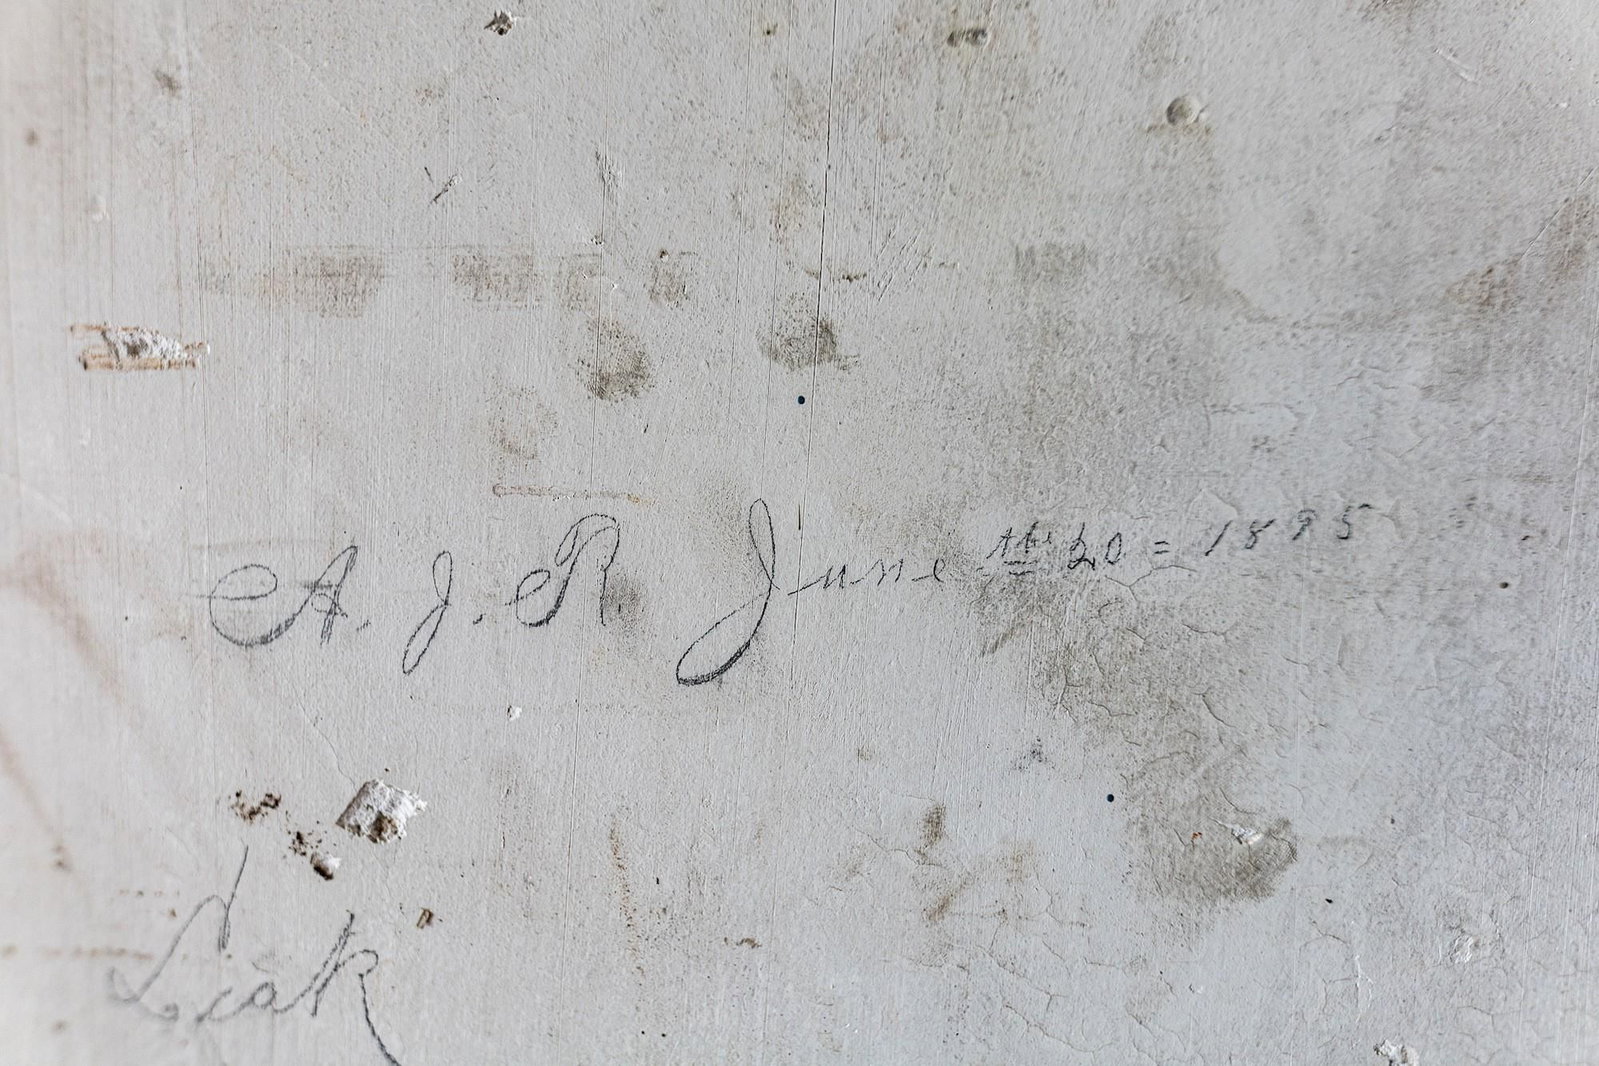 A. J. R. June the 20 = 1895
Leak